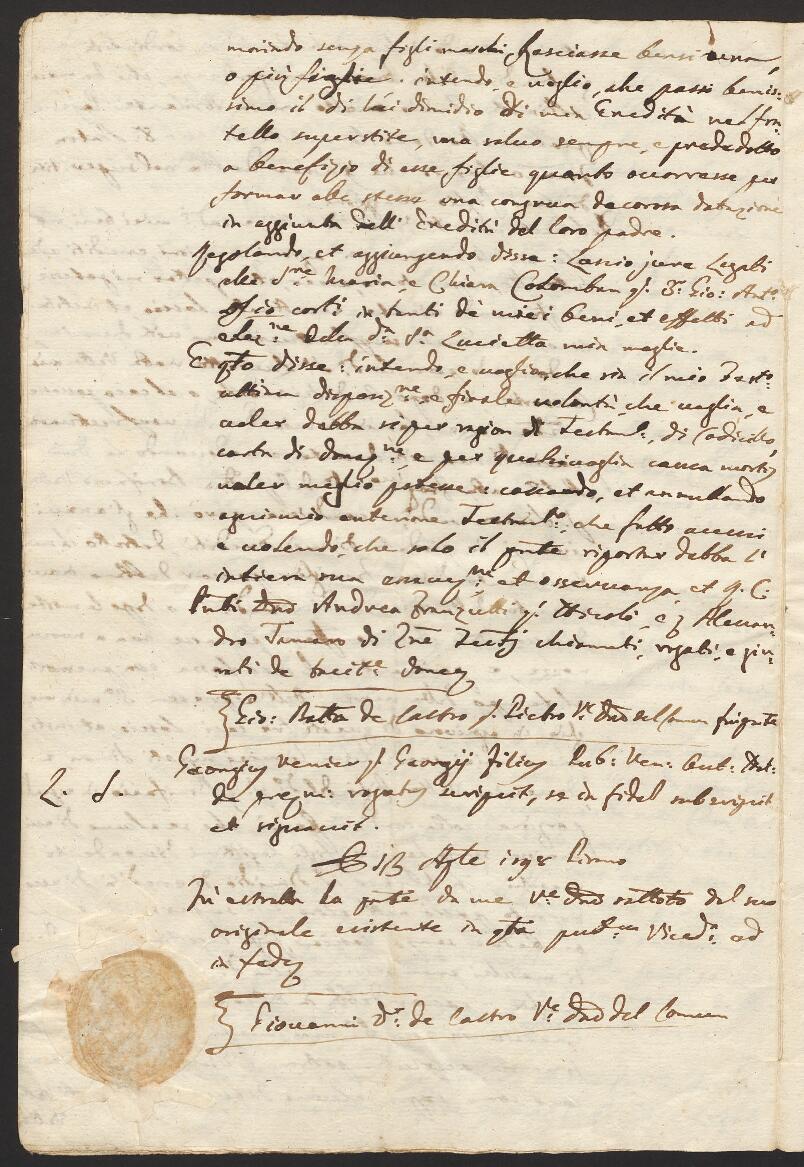 morindo senza figli maschi, lasciasse bensi una,
o più figlie. intendo, e voglio, che passi benis:
simo il di lui dimidio di mia Eredità nel fra
tello superstite, ma salvo sempre, e prededotto
a benefizio di esse figlie quanto occorresse per
formar alle stesse una congrua decorosa dotazione
in aggiunta dell' Eredità del loro padre.
Regolando, et aggiungendo disse: Lascio jure Legati
alle Maria, e Chiara Colomban q. Gio: Ant.º
corti in tanti de miei beni, et effetti ad
elez.ne della d.ª S.ª Lucietta mia moglie.
E q.to disse: intendo, e voglio, che sia il mio Test.º
ultima disposiz.ne, e finale volontà, che voglio, e
valer debba si per ragion di Testm.º, di Codicillo,
carta di donaz.ne e per qualsivoglia causa mortis
valer meglio potesse: cassando, et annullando
ogni mio anteriore Testm.to, che fatto avessi
e volendo, che solo il pnte riportar debba l'
intiera sua esecuz.ne, et osservanza, et q. C:
Pnti Andrea q. Nicolò, e Alessan-
dro Tamaro di Testj chiamati, rogati, e giu-
rati de tacit.e donec
Gio: Batta de Castro q. Pietro V.e Dno del Comun
L. S. Georgius Venier q. Georgij Filius Pub: Ven: Aut: Not:
de premi: rogatus scripsit, se in fidem subscripsit
et signavit.
Pirano
Fu estratta la pnte da me V.e Dno sottoto dal suo
originale esistente in q.ta Viced.ª ad
in fede
Giovanni D.r de Castro V.e Dno del Comun